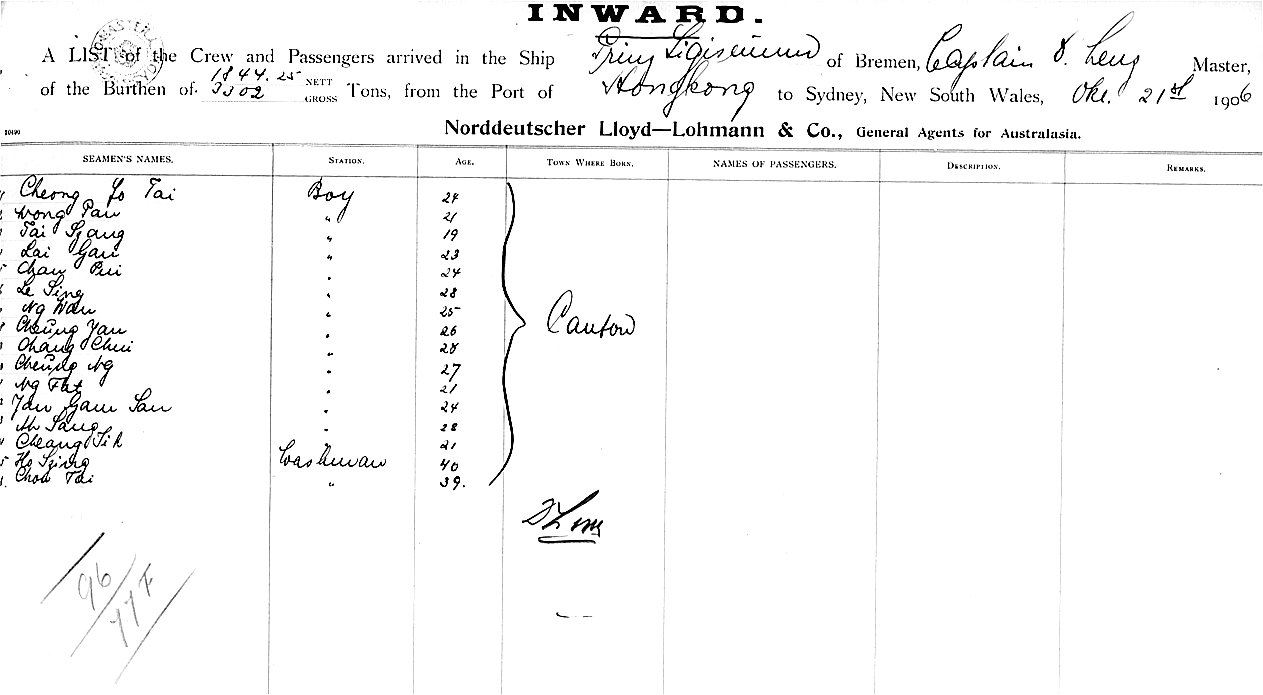 INWARD.
A LIST of the Crew and Passengers arrived in the Ship Prinz Sigismund of Bremen, Captain D. Lenz Master,
of the Burthen of 1844.25 NETT
3302 GROSS Tons, from the Port of Hongkong to Sydney, New South Wales, Okt. 21st 1906
10490
Norddeutscher Lloyd—Lohmann & Co., General Agents for Australasia.
SEAMEN'S NAMES. STATION. AGE. TOWN WHERE BORN. NAMES OF PASSENGERS. DESCRIPTION. REMARKS.
Cheong Yo Tai Boy 24
Wong Pau " 21
Tai Szang " 19
Lai Gau " 23
Chan Pui " 24
Le Sing " 28
Ng Wau " 25
Cheung Yau " 26 Canton
Chang Chui " 28
Cheung Ng " 27
Ng Fat " 21
Yau Gam San " 24
Ah Sang " 28
Cheang Sik " 21
Ho Szing Washman 40
Chou Tai " 39.
96
77 F